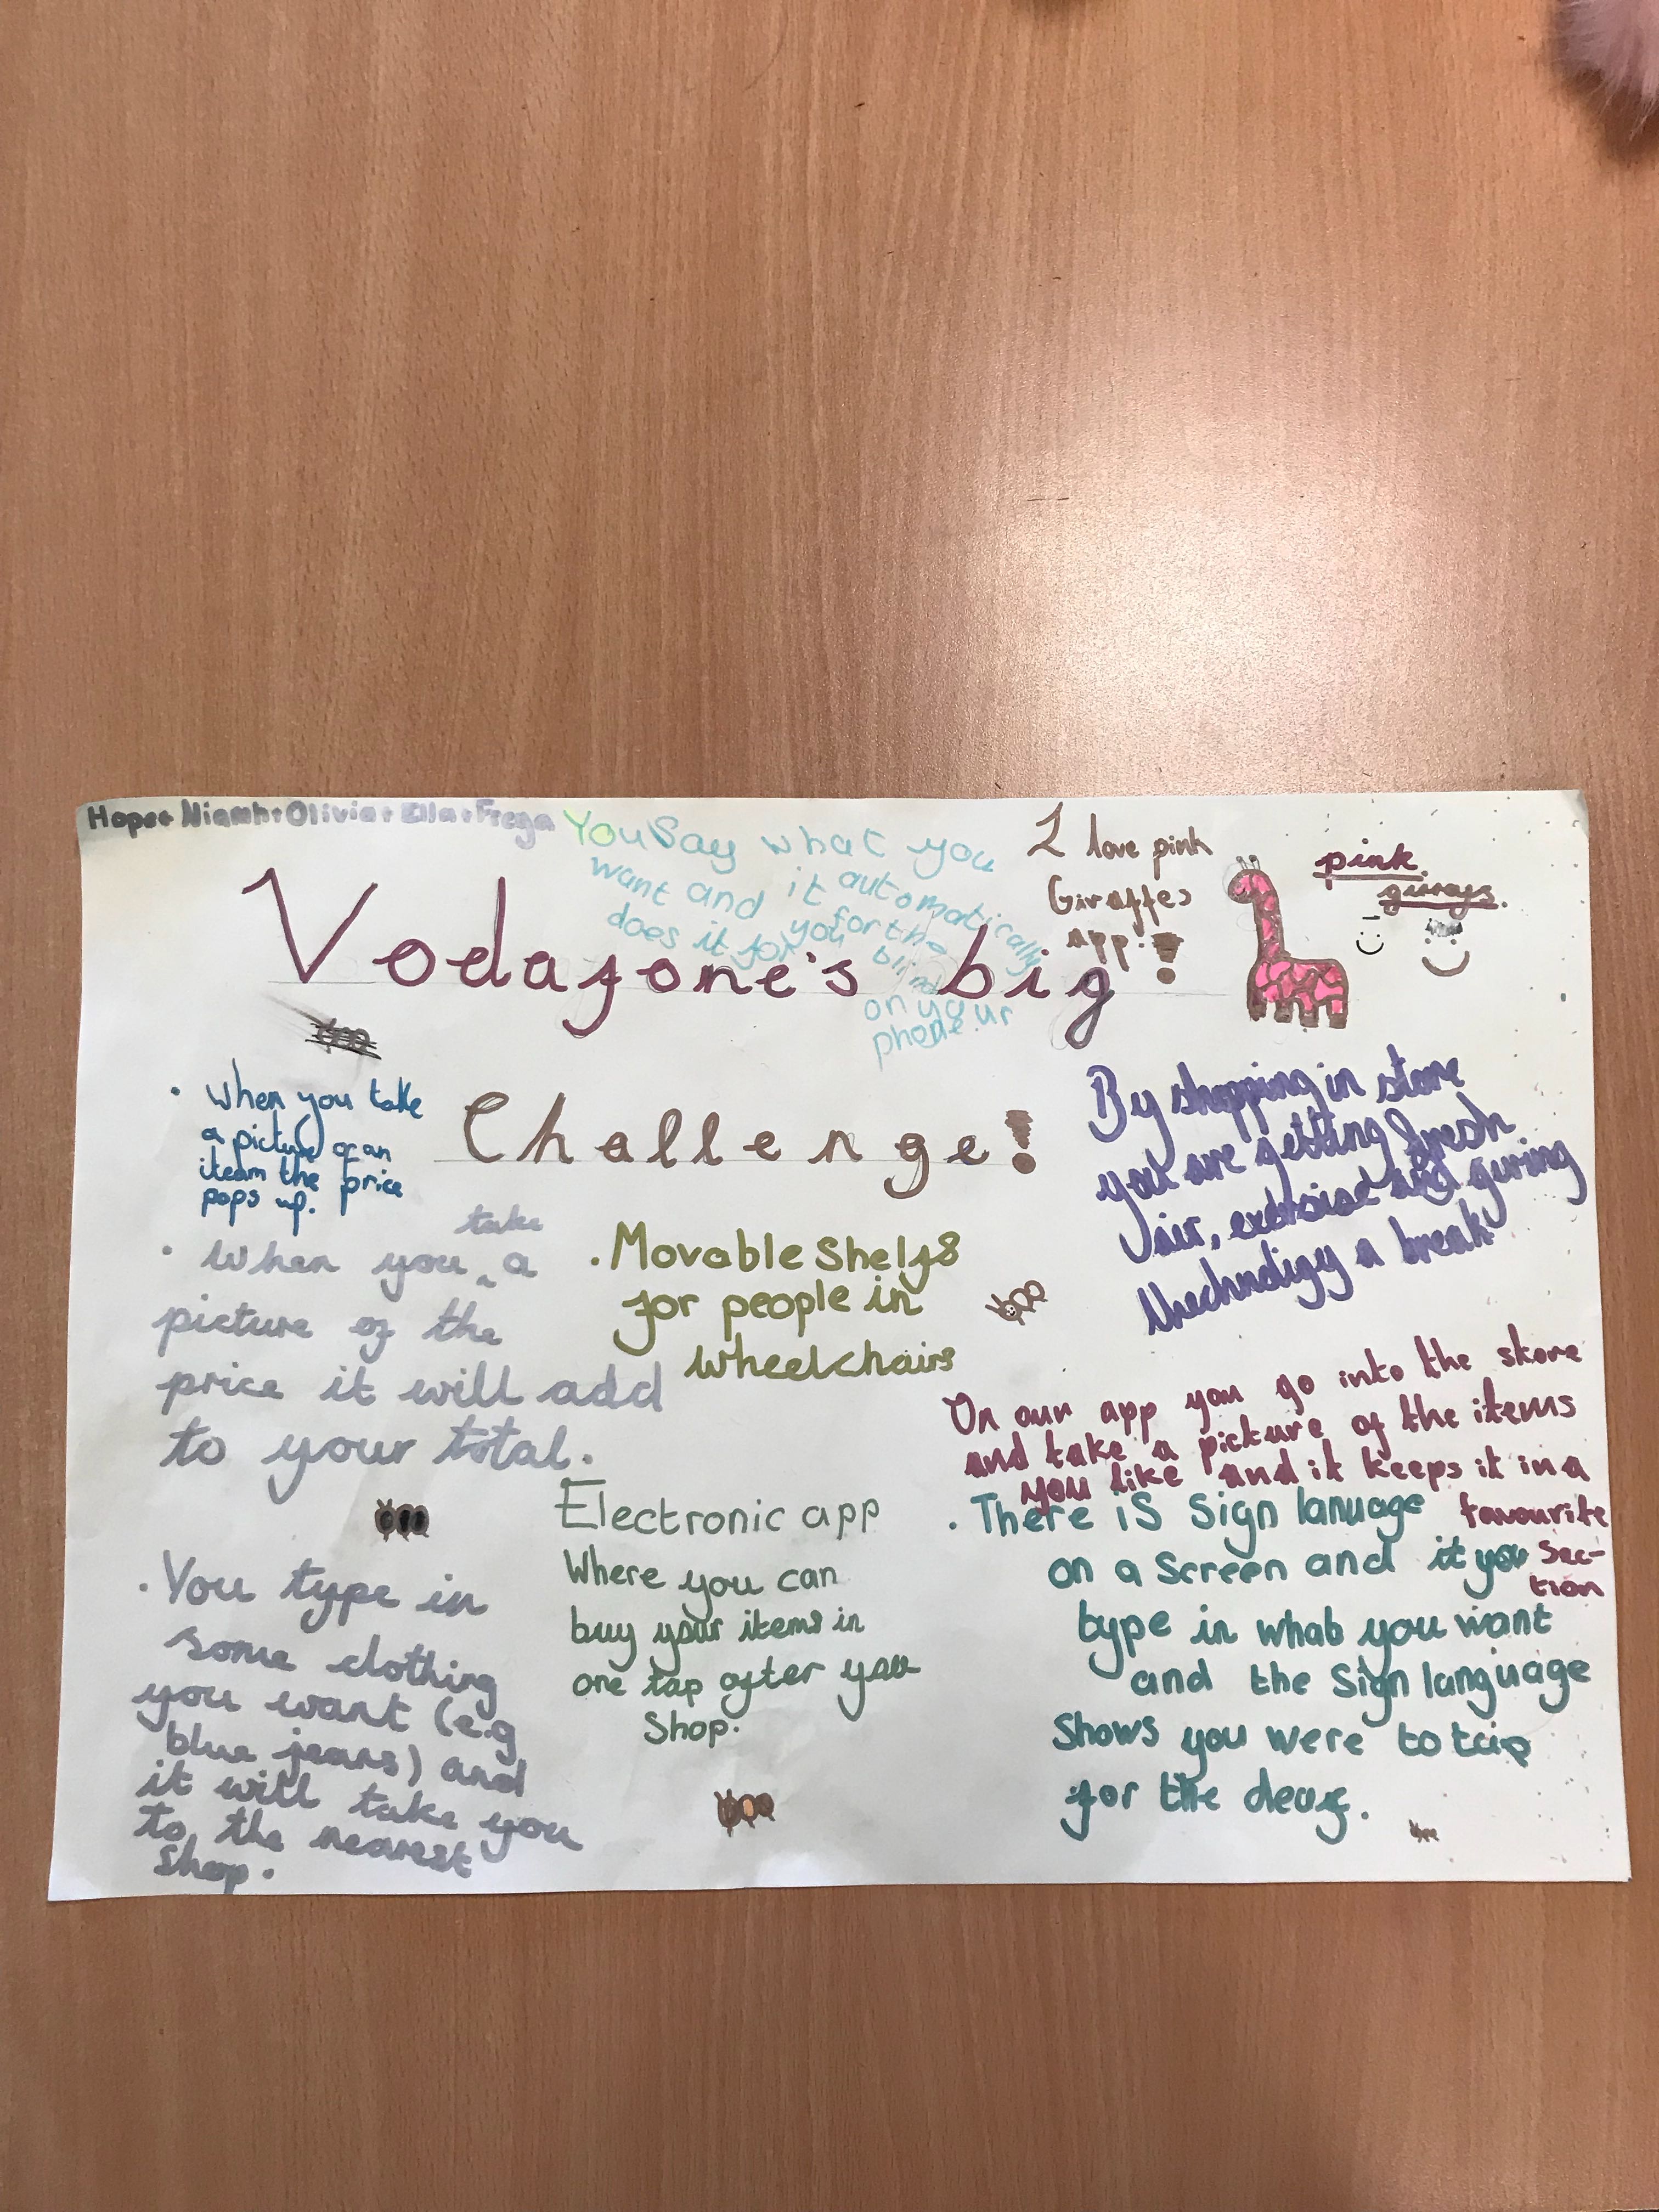 Hope+ Niamh+Olivia+Ella+Freya
You Say what you
want and it automatically
does it for you for the
blind
on your
phone.
I love pink
Giraffes
app!
pink
Vodafone's big
Challenge!
· When you take
a picture of an
iteam the price
pops up.
· When you take a
picture of the
price it will add
to your total.
· You type in
some clothing
you want (e.g
blue jeans) and
it will take you
to the nearest
shop.
· Movable Shelfs
for people in
wheelchairs
Electronic app
Where you can
buy your items in
one tap after you
Shop.
By shopping in store
you are getting fresh
air, exersise and giving
a break
On our app you go into the store
and take a picture of the items
you like and it keeps it in a
favourite
sec-
tion
· There is Sign lanuage
on a Screen and it you
type in what you want
and the Sign language
Shows you were to
for the deaf.